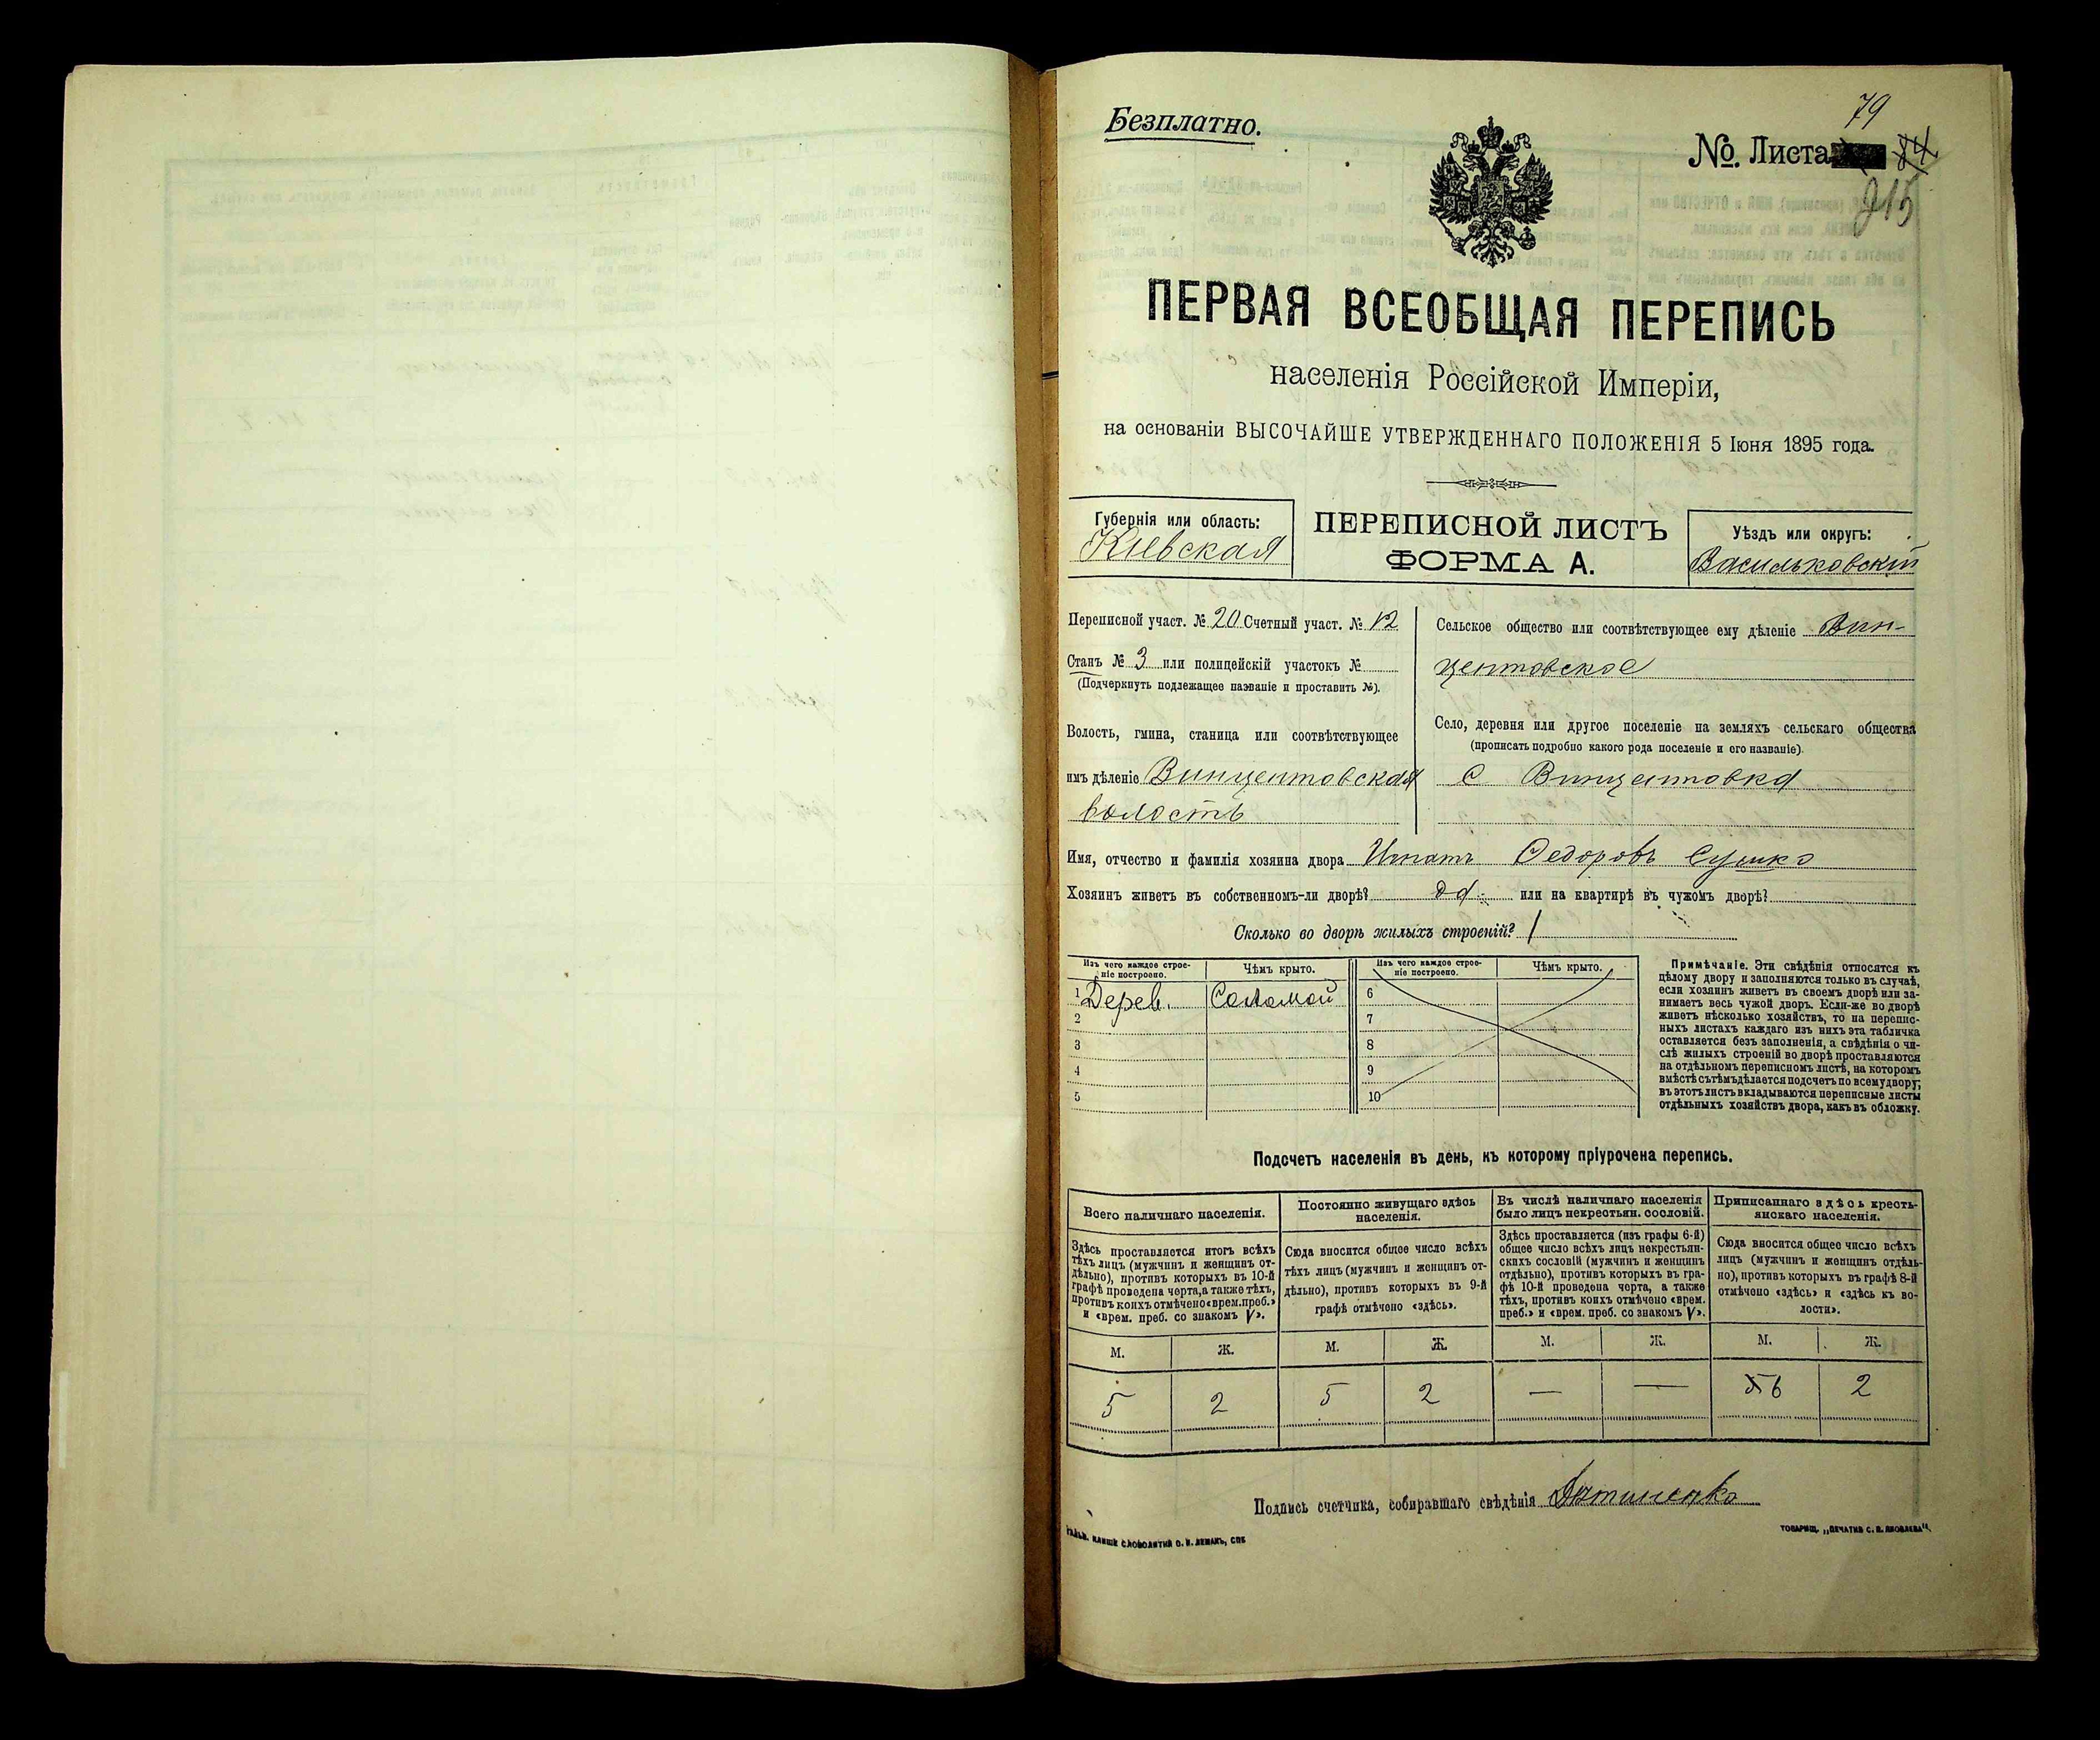 Безплатно.
79
№. Листа 84
215
ПЕРВАЯ ВСЕОБЩАЯ ПЕРЕПИСЬ
населенія Россійской Имперіи,
на основаніи ВЫСОЧАЙШЕ УТВЕРЖДЕННАГО ПОЛОЖЕНІЯ 5 Іюня 1895 года.
Губернія или область:
Кіевская
ПЕРЕПИСНОЙ ЛИСТЪ
ФОРМА А.
Уѣздъ или округъ:
Васильковскій
Переписной участ. № 20 Счетный участ. № 12
Станъ № 3 или полицейскій участокъ №
(Подчеркнуть подлежащее названіе и проставить №).
Волость, гмина, станица или соотвѣтствующее
имъ дѣленіе Винцентовская
волость
Сельское общество или соотвѣтствующее ему дѣленіе Вин-
центовское
Село, деревня или другое поселеніе на земляхъ сельскаго общества
(прописать подробно какого рода поселеніе и его названіе).
с Винцентовка
Имя, отчество и фамилія хозяина двора Игнатъ Федоровъ Сушко
Хозяинъ живетъ въ собственномъ-ли дворѣ? да или на квартирѣ въ чужомъ дворѣ?
Сколько во дворѣ жилыхъ строеній? 1
Изъ чего каждое строе-
ніе построено.
Чѣмъ крыто.
1 Дерев. Соломой
2
3
4
5
Изъ чего каждое строе-
ніе построено.
Чѣмъ крыто.
6
7
8
9
10
Примѣчаніе. Эти свѣдѣнія относятся къ
цѣлому двору и заполняются только въ случаѣ,
если хозяинъ живетъ въ своемъ дворѣ или за-
нимаетъ весь чужой дворъ. Если-же во дворѣ
живетъ нѣсколько хозяйствъ, то на перепис-
ныхъ листахъ каждаго изъ нихъ эта табличка
оставляется безъ заполненія, а свѣдѣнія о чи-
слѣ жилыхъ строеній во дворѣ проставляются
на отдѣльномъ переписномъ листѣ, на которомъ
вмѣстѣ съ тѣмъ дѣлается подсчетъ по всему двору;
въ этотъ листъ вкладываются переписные листы
отдѣльныхъ хозяйствъ двора, какъ въ обложку.
Подсчетъ населенія въ день, къ которому пріурочена перепись.
Всего наличнаго населенія.
Здѣсь проставляется итогъ всѣхъ
тѣхъ лицъ (мужчинъ и женщинъ от-
дѣльно), противъ которыхъ въ 10-й
графѣ проведена черта, а также тѣхъ,
противъ коихъ отмѣчено «врем. преб.»
и «врем. преб. со знакомъ V».
М. Ж.
5 2
Постоянно живущаго здѣсь
населенія.
Сюда вносится общее число всѣхъ
тѣхъ лицъ (мужчинъ и женщинъ от-
дѣльно), противъ которыхъ въ 9-й
графѣ отмѣчено «здѣсь».
М. Ж.
5 2
Въ числѣ наличнаго населенія
было лицъ некрестьян. сословій.
Здѣсь проставляется (изъ графы 6-й)
общее число всѣхъ лицъ некрестьян-
скихъ сословій (мужчинъ и женщинъ
отдѣльно), противъ которыхъ въ гра-
фѣ 10-й проведена черта, а также
тѣхъ, противъ коихъ отмѣчено «врем.
преб.» и «врем. преб. со знакомъ V».
М. Ж.
— —
Приписаннаго здѣсь кресть-
янскаго населенія.
Сюда вносится общее число всѣхъ
лицъ (мужчинъ и женщинъ отдѣль-
но), противъ которыхъ въ графѣ 8-й
отмѣчено «здѣсь» и «здѣсь къ во-
лости».
М. Ж.
5 6 2
Подпись счетчика, собиравшаго свѣдѣнія
СЛОВОЛИТНИ О. И. ЛЕМАНЪ, СПБ
ТОВАРИЩ. „ПЕЧАТНЯ С. П. ЯКОВЛЕВА".